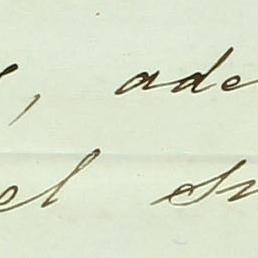 , ade
el su